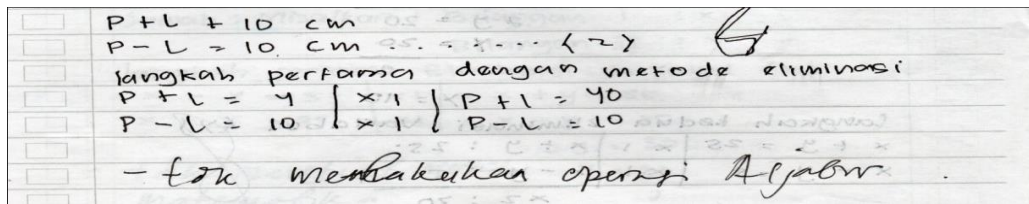 P + L + 10 cm
P - L = 10 cm . . . . . . . (2)
langkah pertama dengan metode eliminasi
P + L = 4 | x 1 | P + L = 40
P - L = 10 | x 1 | P - L = 10
- tdk melakukan operasi Aljabar